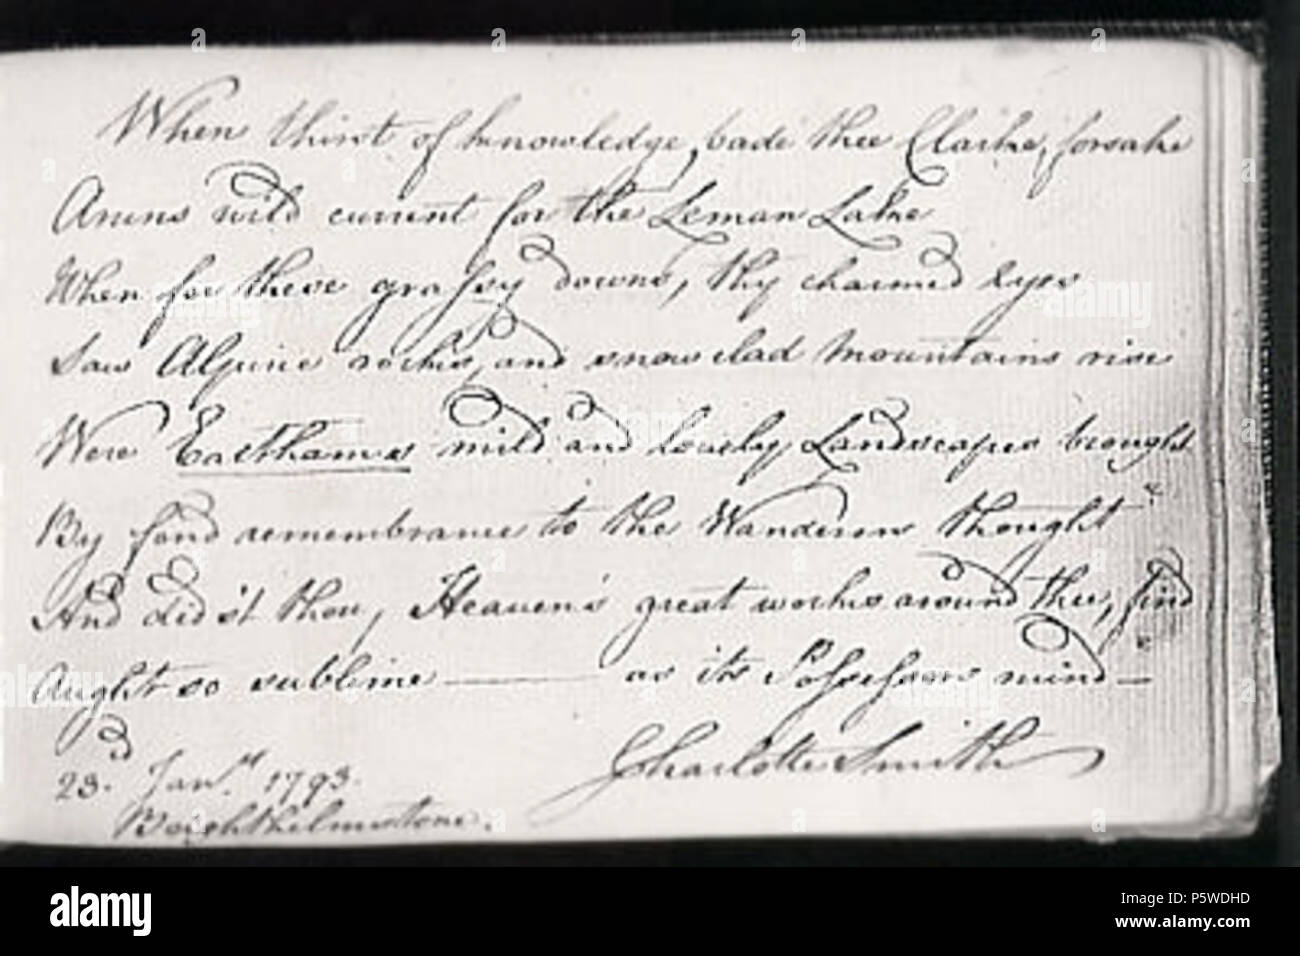 When thirst of knowledge, bade thee Clarke, forsake
Aruns mild current for the Leman Lake
When for these grassy downs, thy charmed Eyes
Saw Alpine rocks, and snow clad mountains rise
Were Easthams mild and lovely Landscapes brought
By fond remembrance to the Wanderers thought
And did'st thou, Heaven's great works around thee, find
Aught so sublime —— as its Possessors mind —
23.d Jan.ry 1793.
Brighthelmstone.
Charlotte Smith
a
a
alamy
Image ID: P5WDHD
www.alamy.com